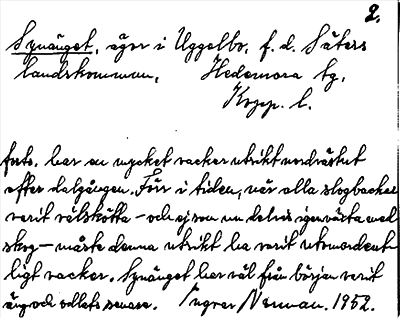 2.
Synänget, ägor i Uggelbo, f. d. Säters
landskommun, Hedemora tg,
Kopp. l.
forts. har en mycket vacker utsikt nordväst ut
efter dalgången. Förr i tiden, när alla slogbackar
varit välskötta – och ej som nu delvis igenväxta med
skog – måste denna utsikt ha varit utomordent-
ligt vacker. Synänget har väl från början varit
äng och odlats senare. Ingvar Norman. 1952.